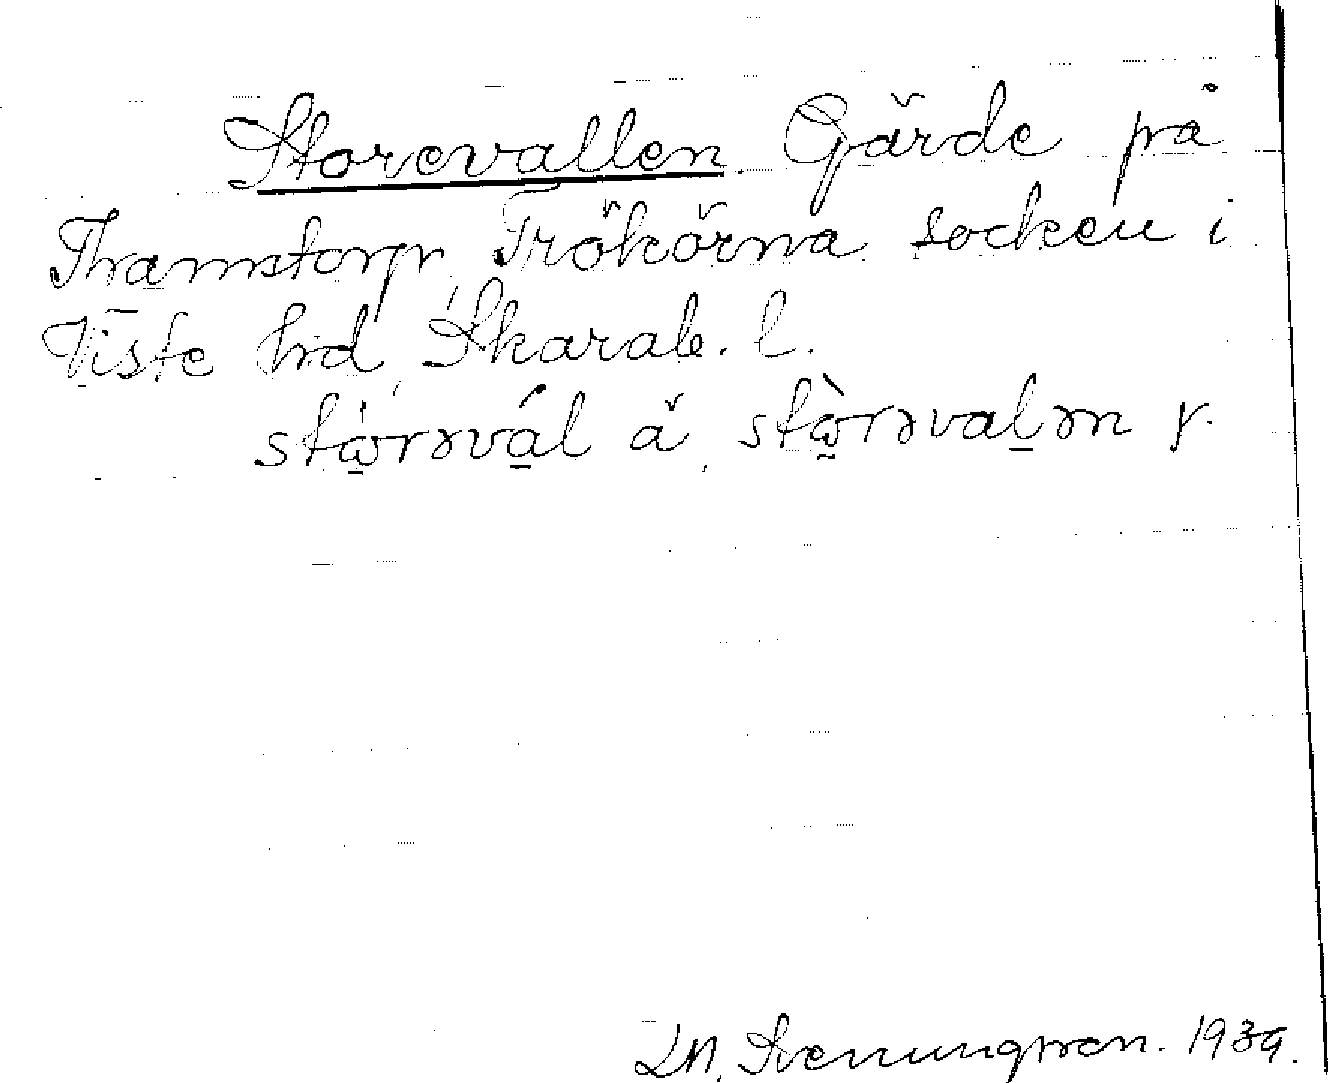 Storevallen Gärde på
Thamstorp, Trökörna socken i
Viste hd, Skarab. l.
stɷrəvál ä, stɷ̀rəvalən r.
L.M. Svenungsson. 1939.